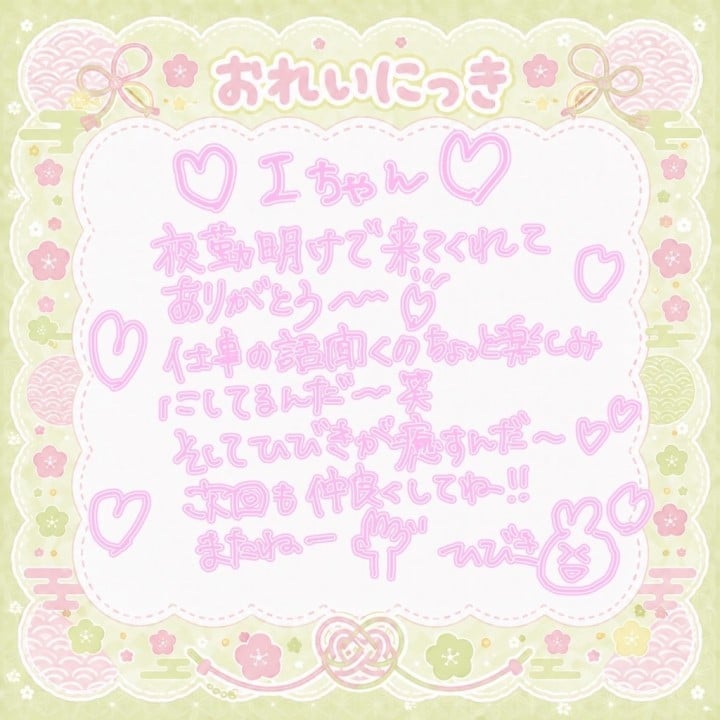 おれいにっき
Iちゃん
夜勤明けで来てくれて
ありがとう〜
仕事の話聞くのちょっと楽しみ
にしてるんだ〜笑
そしてひびきが癒すんだ〜
次回も仲良くしてね!!
またねー
ひびき